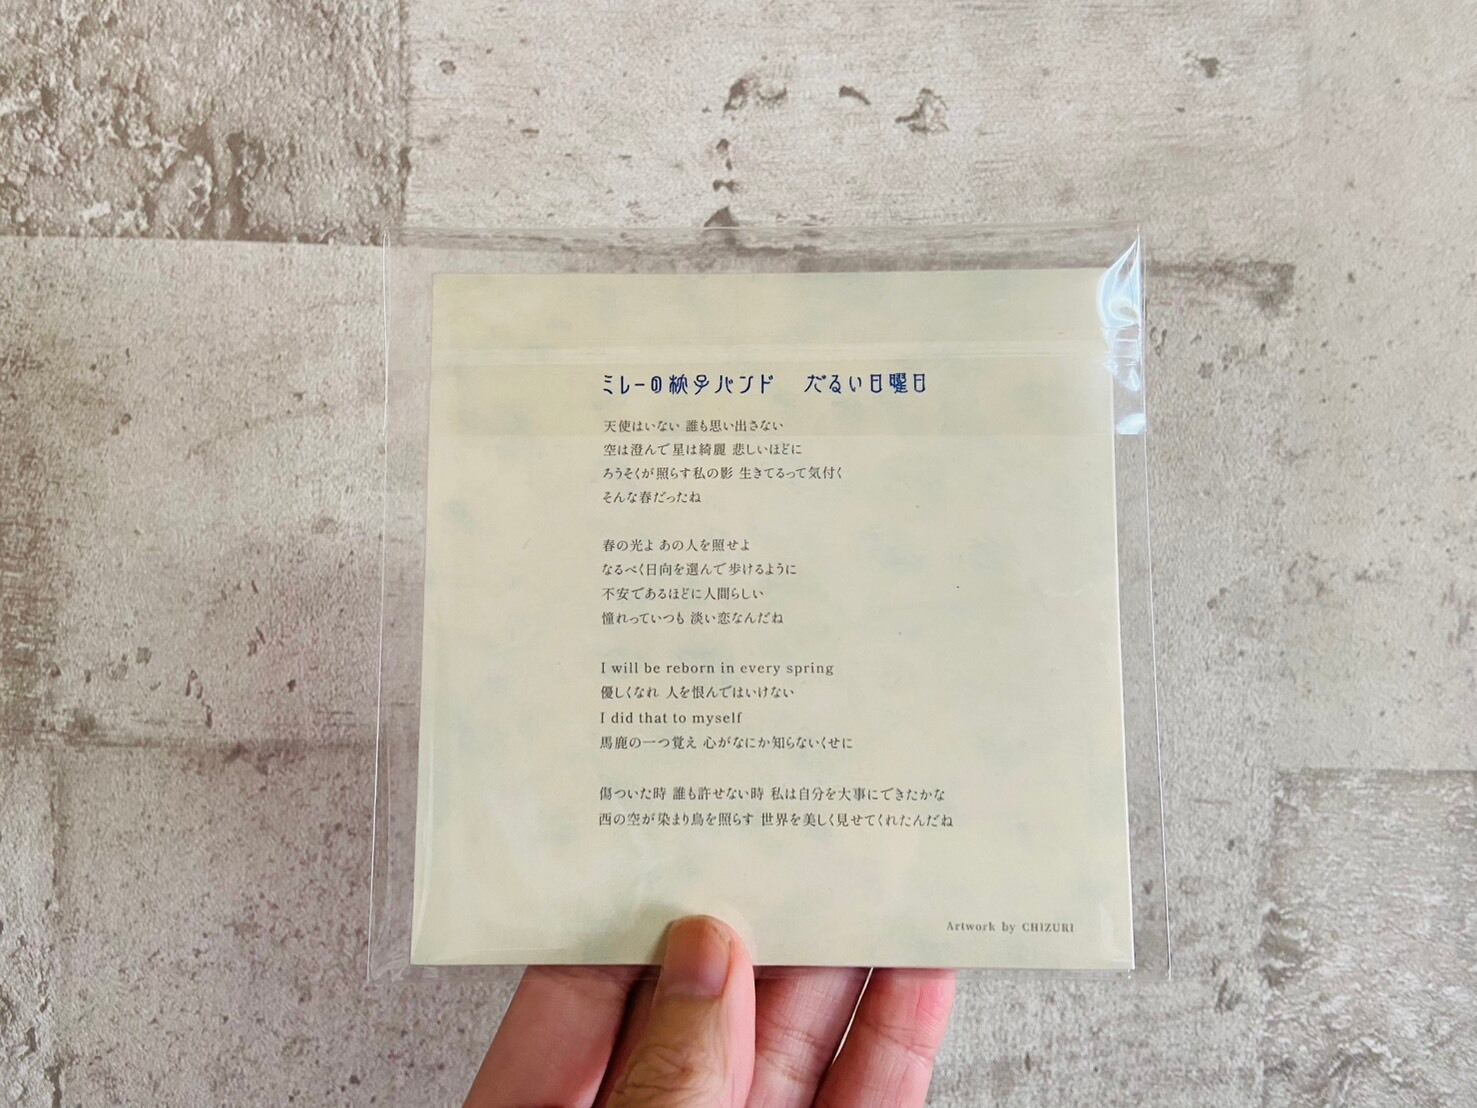 ミレーの枕子バンド だるい日曜日
天使はいない 誰も思い出さない
空は澄んで星は綺麗 悲しいほどに
ろうそくが照らす私の影 生きてるって気付く
そんな春だったね
春の光よ あの人を照せよ
なるべく日向を選んで歩けるように
不安であるほどに人間らしい
憧れっていつも 淡い恋なんだね
I will be reborn in every spring
優しくなれ 人を恨んではいけない
I did that to myself
馬鹿の一つ覚え 心がなにか知らないくせに
傷ついた時 誰も許せない時 私は自分を大事にできたかな
西の空が染まり鳥を照らす 世界を美しく見せてくれたんだね
Artwork by CHIZURI